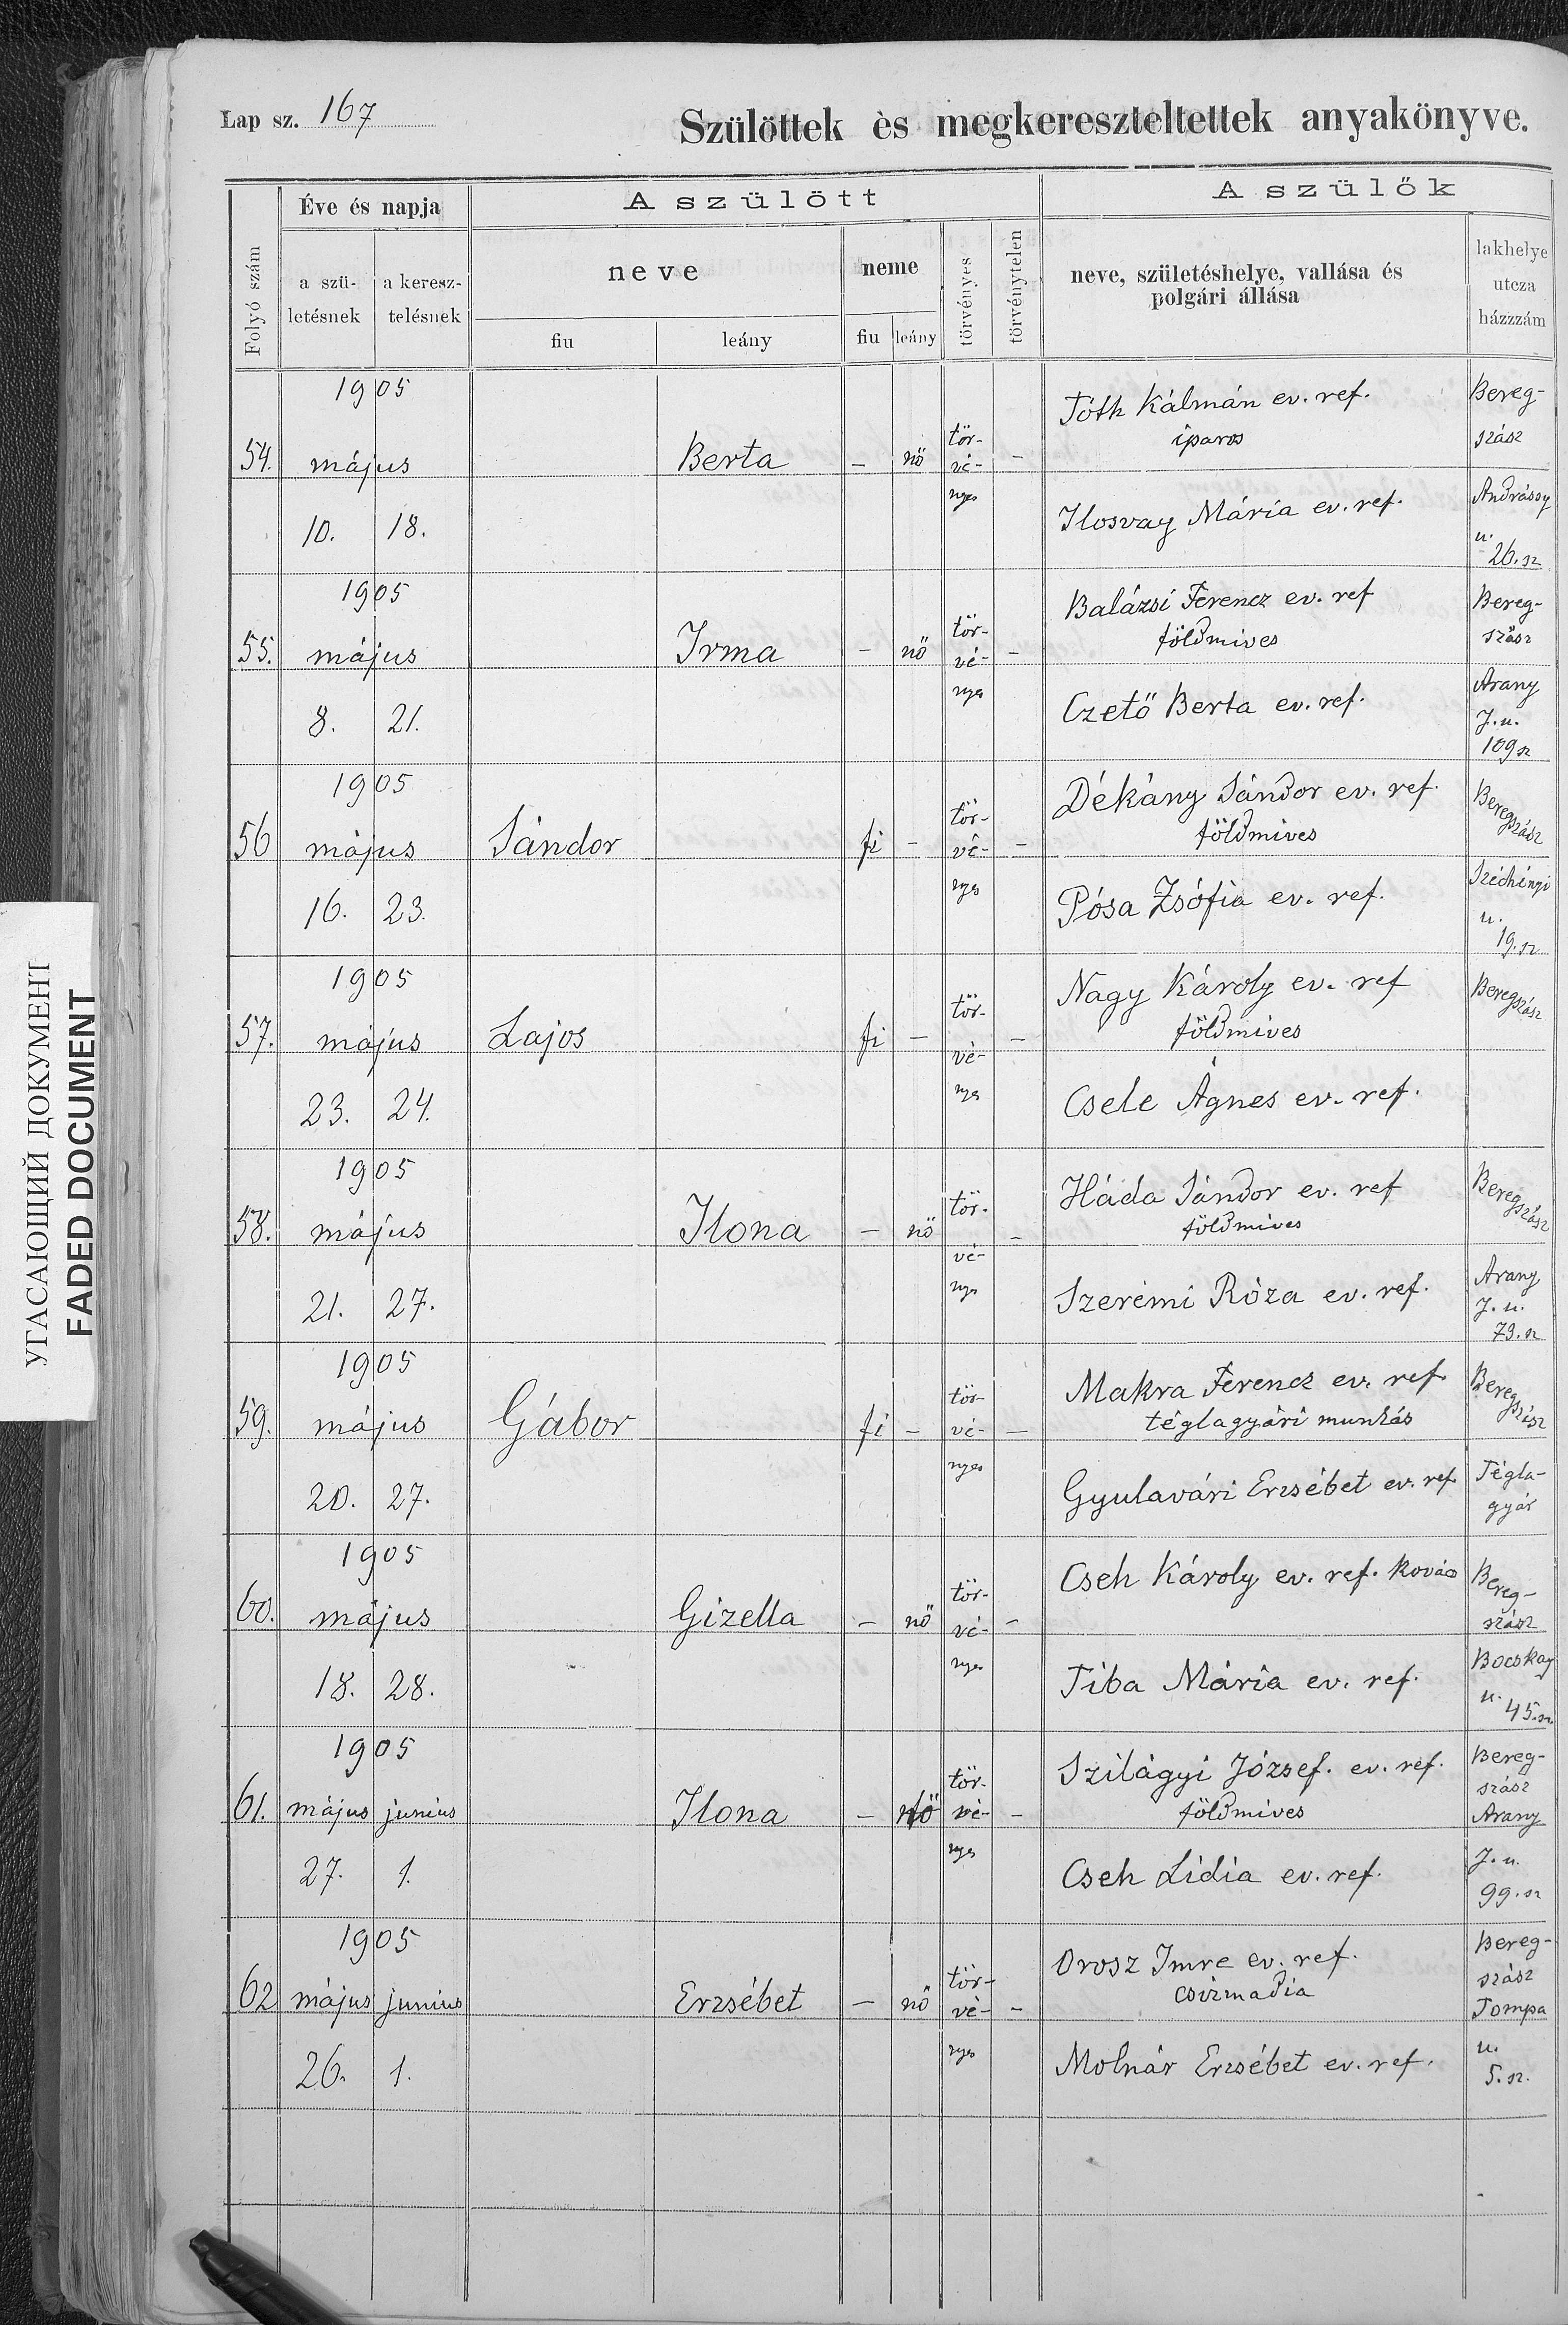 Lap sz. 167
Szülöttek ès megkereszteltettek anyakönyve.
Folyó szám
Éve és napja
a szü-
letésnek
a keresz-
telésnek
A szülött
neve
fiu
leány
neme
fiu
leány
törvényes
törvénytelen
A szülők
neve, születéshelye, vallása és
polgári állása
lakhelye
utcza
házzzám
54. 1905 május 10. 18. Berta – nő tör-vé-nyes –
Tóth Kálmán ev. ref.
iparos
Ilosvay Mária ev. ref.
Bereg-
szász
Andrássy
u.
26. sz
55. 1905 május 8. 21. Irma – nő tör-vé-nyes –
Balázsi Ferencz ev. ref
földmives
Czető Berta ev. ref.
Bereg-
szász
Arany
J. u.
109 sz
56 1905 május 16. 23. Sándor fi – tör-vé-nyes –
Dékány Sándor ev. ref.
földmives
Pósa Zsófia ev. ref.
Beregszász
Széchényi
u.
19. sz
57. 1905 május 23. 24. Lajos fi – tör-vé-nyes –
Nagy Károly ev. ref
földmives
Csele Ágnes ev. ref.
Beregszász
58. 1905 május 21. 27. Ilona – nő tör-vé-nyes –
Háda Sándor ev. ref
földmives
Szerémi Róza ev. ref.
Beregszász
Arany
J. u.
73. sz
59. 1905 május 20. 27. Gábor fi – tör-vé-nyes –
Makra Ferencz ev. ref
téglagyári munkás
Gyulavári Erzsébet ev. ref
Beregszász
Tégla-
gyár
60. 1905 május 18. 28. Gizella – nő tör-vé-nyes –
Cseh Károly ev. ref. kovács
Tiba Mária ev. ref.
Bereg-
szász
Bocskay
u. 45. sz.
61. 1905 május junius 27. 1. Ilona – nő tör-vé-nyes –
Szilágyi József. ev. ref.
földmives
Cseh Lidia ev. ref.
Bereg-
szász
Arany
J. u.
99. sz
62 1905 május junius 26. 1. Erzsébet – nő tör-vé-nyes –
Orosz Imre ev. ref.
csizmadia
Molnár Erzsébet ev. ref.
Bereg-
szász
Tompa
u.
5. sz.
УГАСАЮЩИЙ ДОКУМЕНТ
FADED DOCUMENT